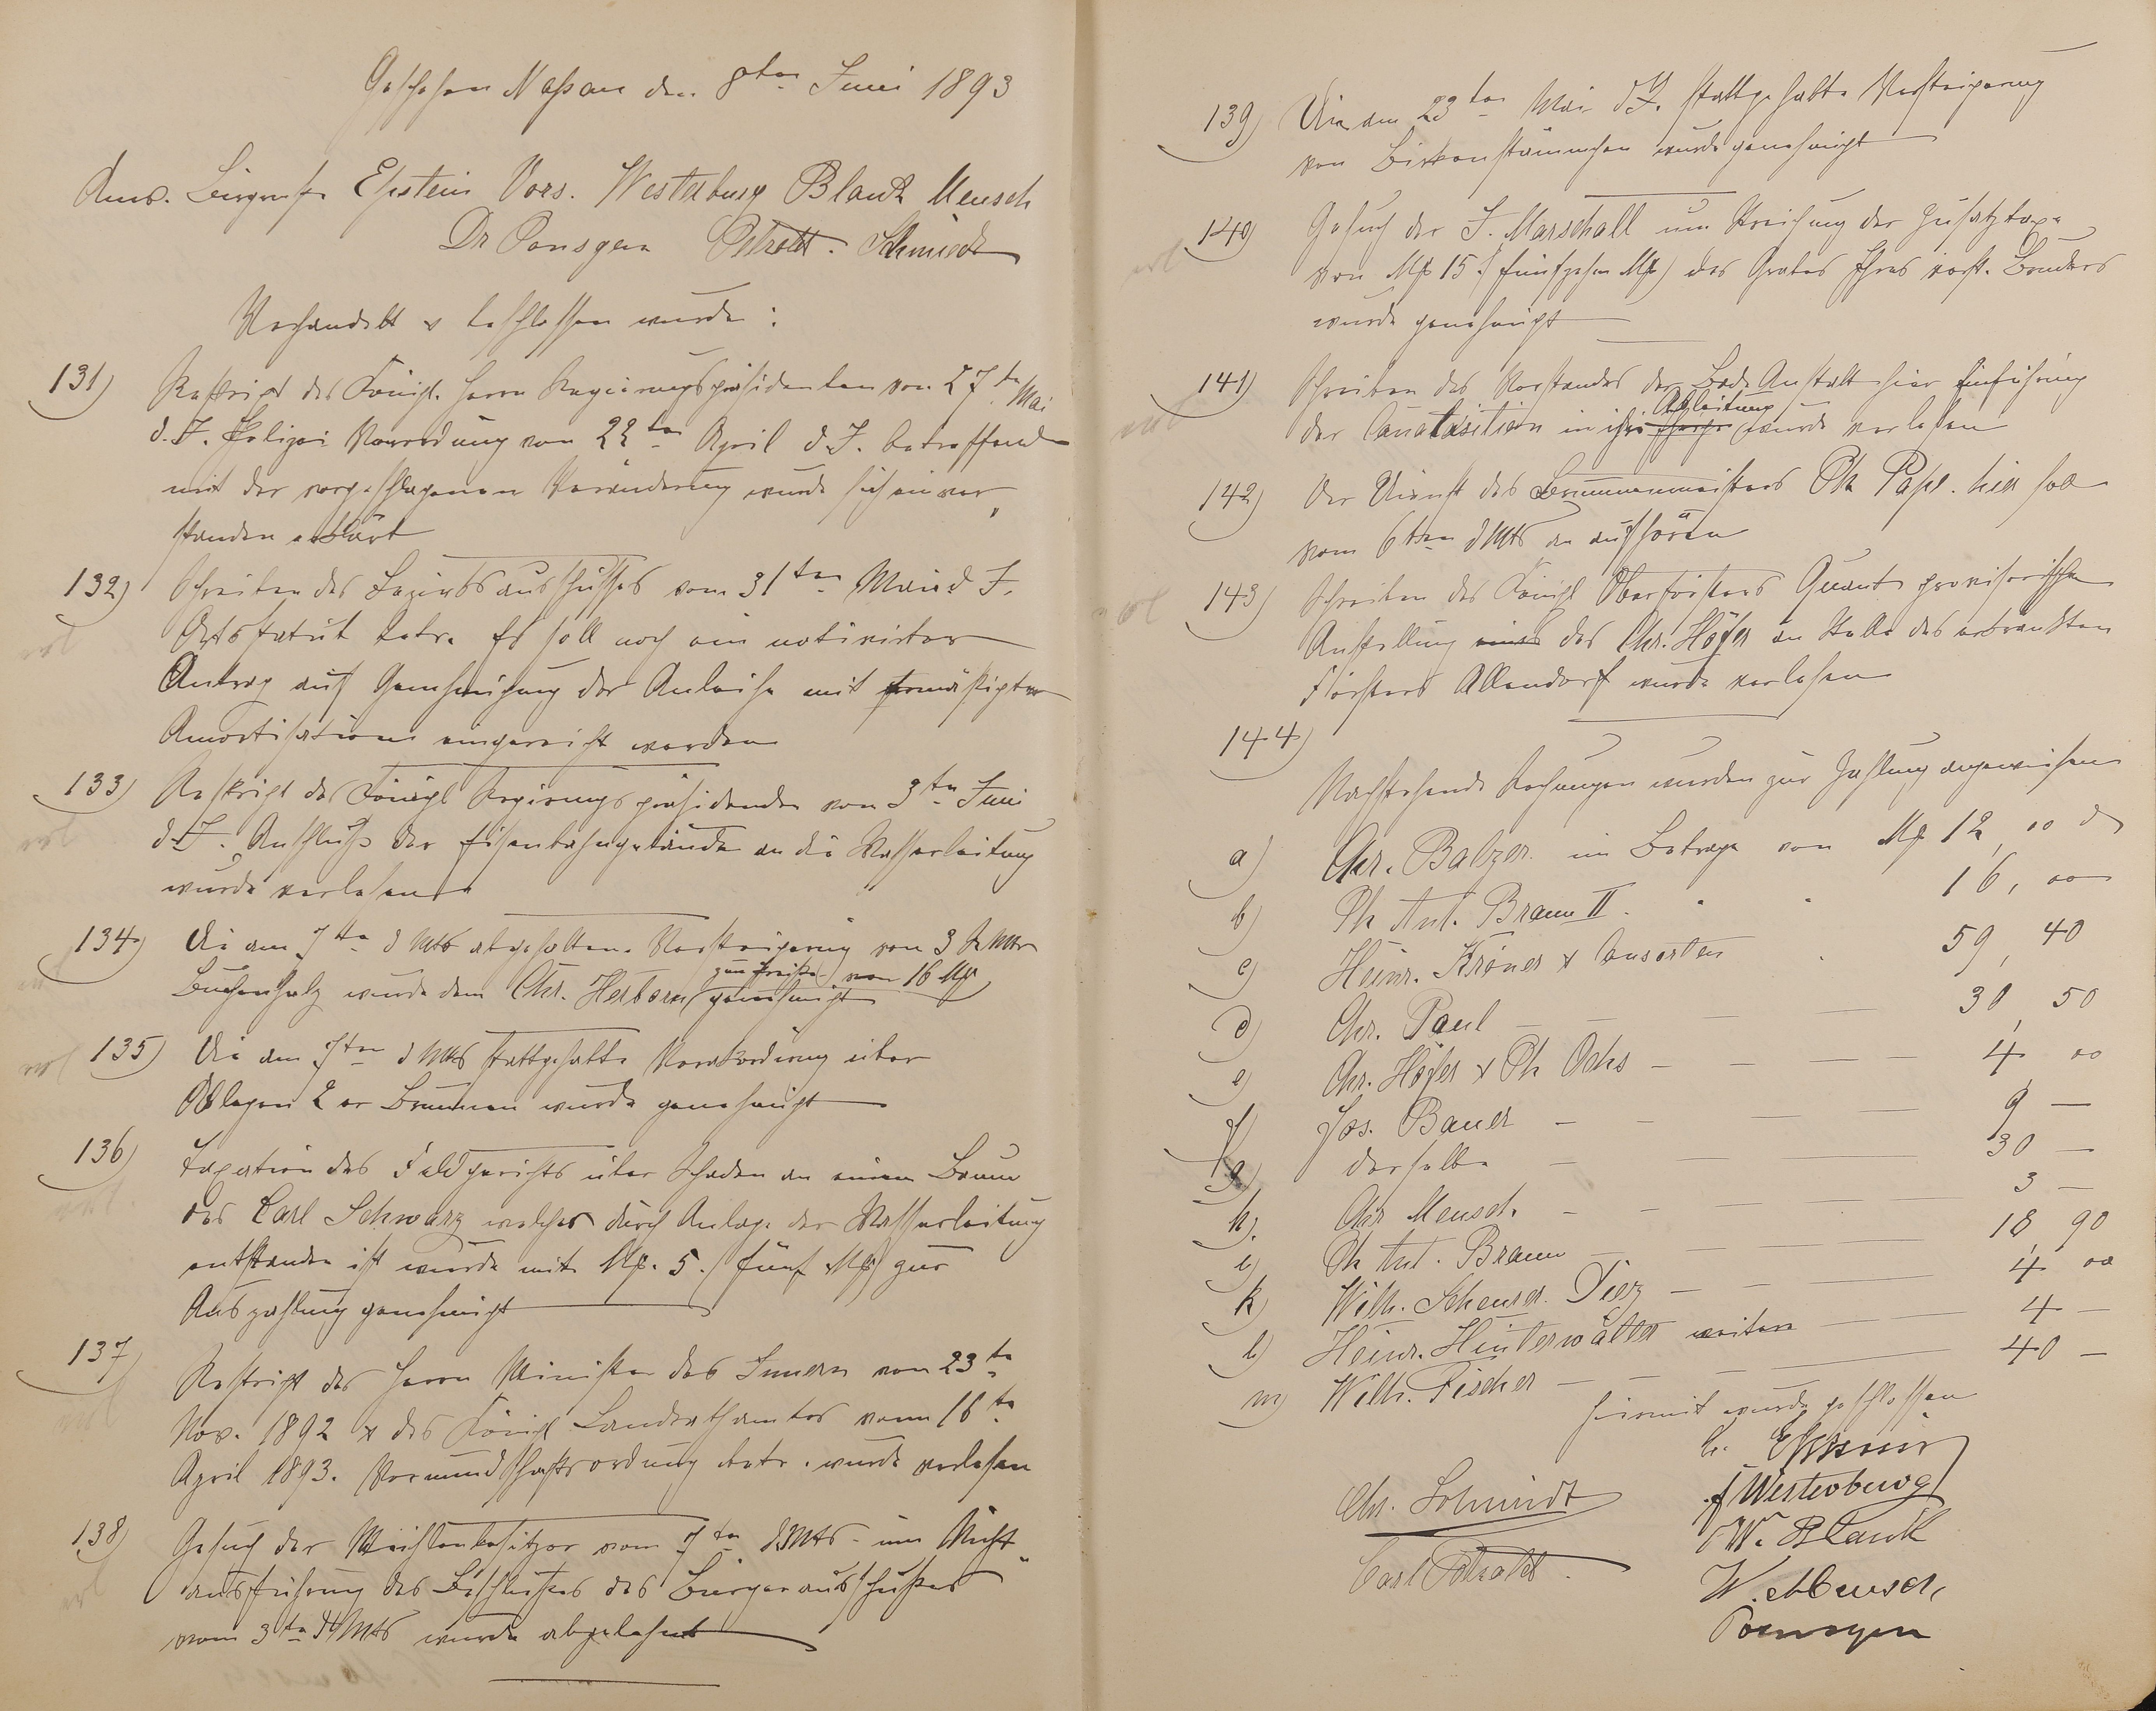 Geschehen Nassau den 8ten Juni 1893
Anw. Bürgermstr Epstein Vors. Westerburg Blank Mensch
Dr Poensgen Petzoldt. Schmidt
Verhandelt & beschlossen wurde:
131) Reskript des Königl. Herrn Regierungspräsidenten vom 27ten Mai
d. J. Polizei Verordnung vom 22ten April d. J. betreffend
mit der vorgeschlagenen Veränderung wurde sich einver„
standen erklärt
132) Schreiben des Bezirksausschusses vom 31ten Mai d. J.
Ortsstatut betr. Es soll noch ein motivirter
Antrag auf Genehmigung der Anleihe mit ermäßigter
Amortisation eingereicht werden
133) Reskript des Königl Regierungspräsidenten vom 3ten Juni
d. J. Anschluß der Eisenbahngebäude an die Wasserleitung
wurde verlesen
134) Die am 7ten d Mts abgehaltene Versteigerung von 3 Rmtr
Buchenholz wurde dem Chr. Herborn zum Preise von 16 Mk
genehmigt
135) Die am 7ten d Mts stattgehabte Veraccordirung über
Ablegen 2er Brunnen wurde genehmigt
136) Taxation des Feldgerichts über Schaden an einem Baum
des Carl Schwarz welcher durch Anlage der Wasserleitung
entstanden ist wurde mit Mk. 5. (fünf Mk) zur
Auszahlung genehmigt
137) Reskript des Herrn Minister des Innern vom 23ten
Nov. 1892 & des Königl Landrathsamtes vom 16ten
April 1893. Vormundschaftsordnung betr. wurde verlesen
138) Gesuch der Wiesenbesitzer vom 7ten d Mts. um Nicht„
ausführung des Beschlusses des Bürgerausschusses
vom 3ten d Mts wurde abgelehnt
139) Die am 23ten Mai d J. stattgehabte Versteigerung
von Birkenstämmchen wurde genehmigt
140) Gesuch der J. Marschall um Streichung der Zusatztaxe
von Mk 15. (fünfzehn Mk) des Grabes Ihres verst. Bruders
wurde genehmigt
141) Schreiben des Vorstandes der Bade Anstalt hier Einführung
der in ihre Ableitung wurde verlesen
142) Der Dienst des Brunnenmeisters Ph. Paul. hier soll
vom 6ten d Mts an aufhören
143) Schreiben des Königl Oberförsters Quant provisorische
Anstellung eines des Chr. Höfer an Stelle des erkrankten
Försters Allendorf wurde verlesen
144)
Nachstehende Rechnungen wurden zur Zahlung angewiesen
a) Chr. Balzer im Betrage von Mk 12, 00 d
b) Ph Ant. Braun II. " " 16, 00
c) Heinr. Kröner & Consorten 59, 40
d) Chr. Paul — — — — 30, 50
e) Chr. Höfer & Ph Ochs — — — — 4 00
f) Jos. Bauer — — — — 9 —
g) derselbe — — — 30 —
h). Chr Mensch. — — — — 3 —
i) Ph Ant. Braun — — — 18, 90
k) Wilh. Scheurer. Diez — — — 4 00
l) Heinr. Hinterwälter weitere — — 4 —
m) Wilh. Fischer — — — — 40 —
hiermit wurde geschlossen
C. Epstein
Westerburg
Chr. Schmidt
W. Blank
Carl Petzoldt.
W. Mensch
Poensgen